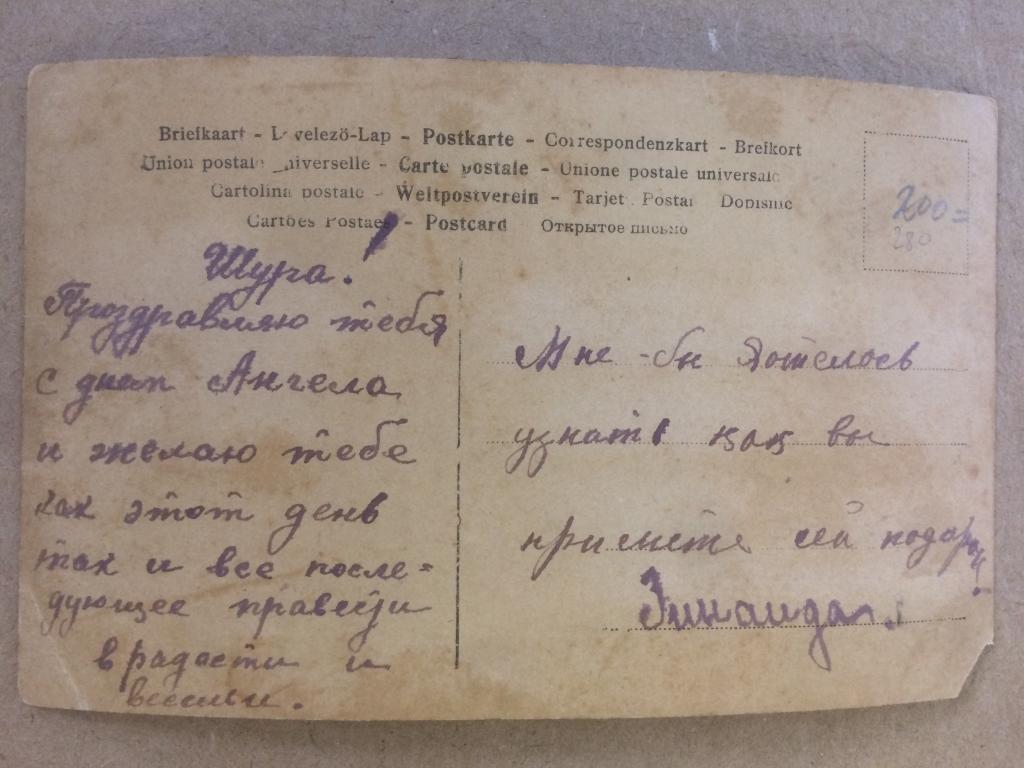 Briefkaart - L velezö-Lap - Postkarte - Correspondenzkart - Brefkort
Union postale universelle - Carte postale - Unione postale universale
Cartolina postale - Weltpostverein - Tarjet. Postal Dopisnic
Cartoes Postaes - Postcard Открытое письмо
200=
280
Шура!
Проздравляю тебя
с днем Ангела
и желаю тебе
как этот день
так и все после=
дующее правести
в радасти и
весельи.
Мне-бы Хотелось
узнать как вы
примете сей подарок!
Зинаида.